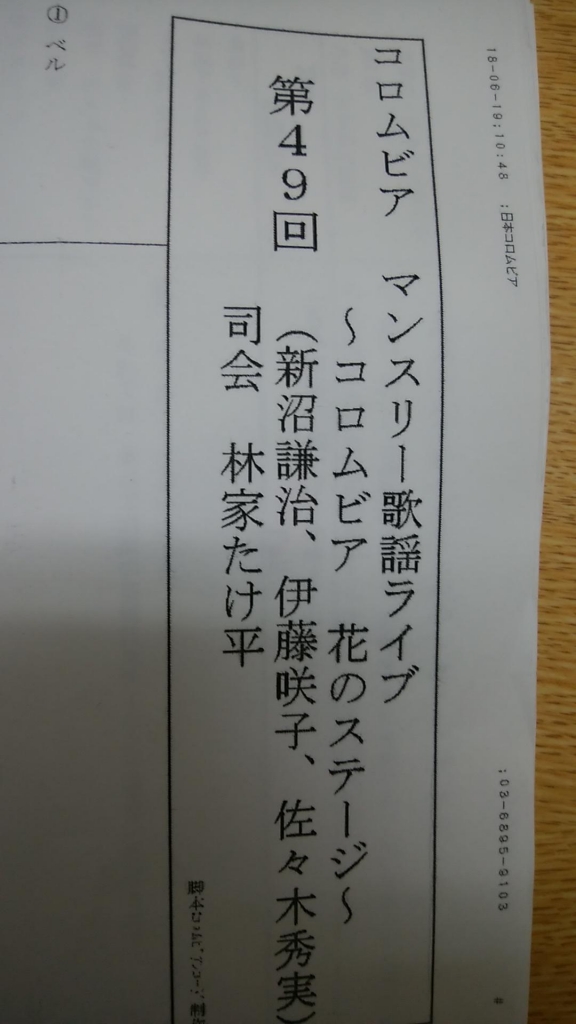 18-06-19;10:48 ;日本コロムビア ;03-6895-9103 #
コロムビア マンスリー歌謡ライブ
～コロムビア 花のステージ～
第49回 (新沼謙治、伊藤咲子、佐々木秀実)
司会 林家たけ平
① ベル